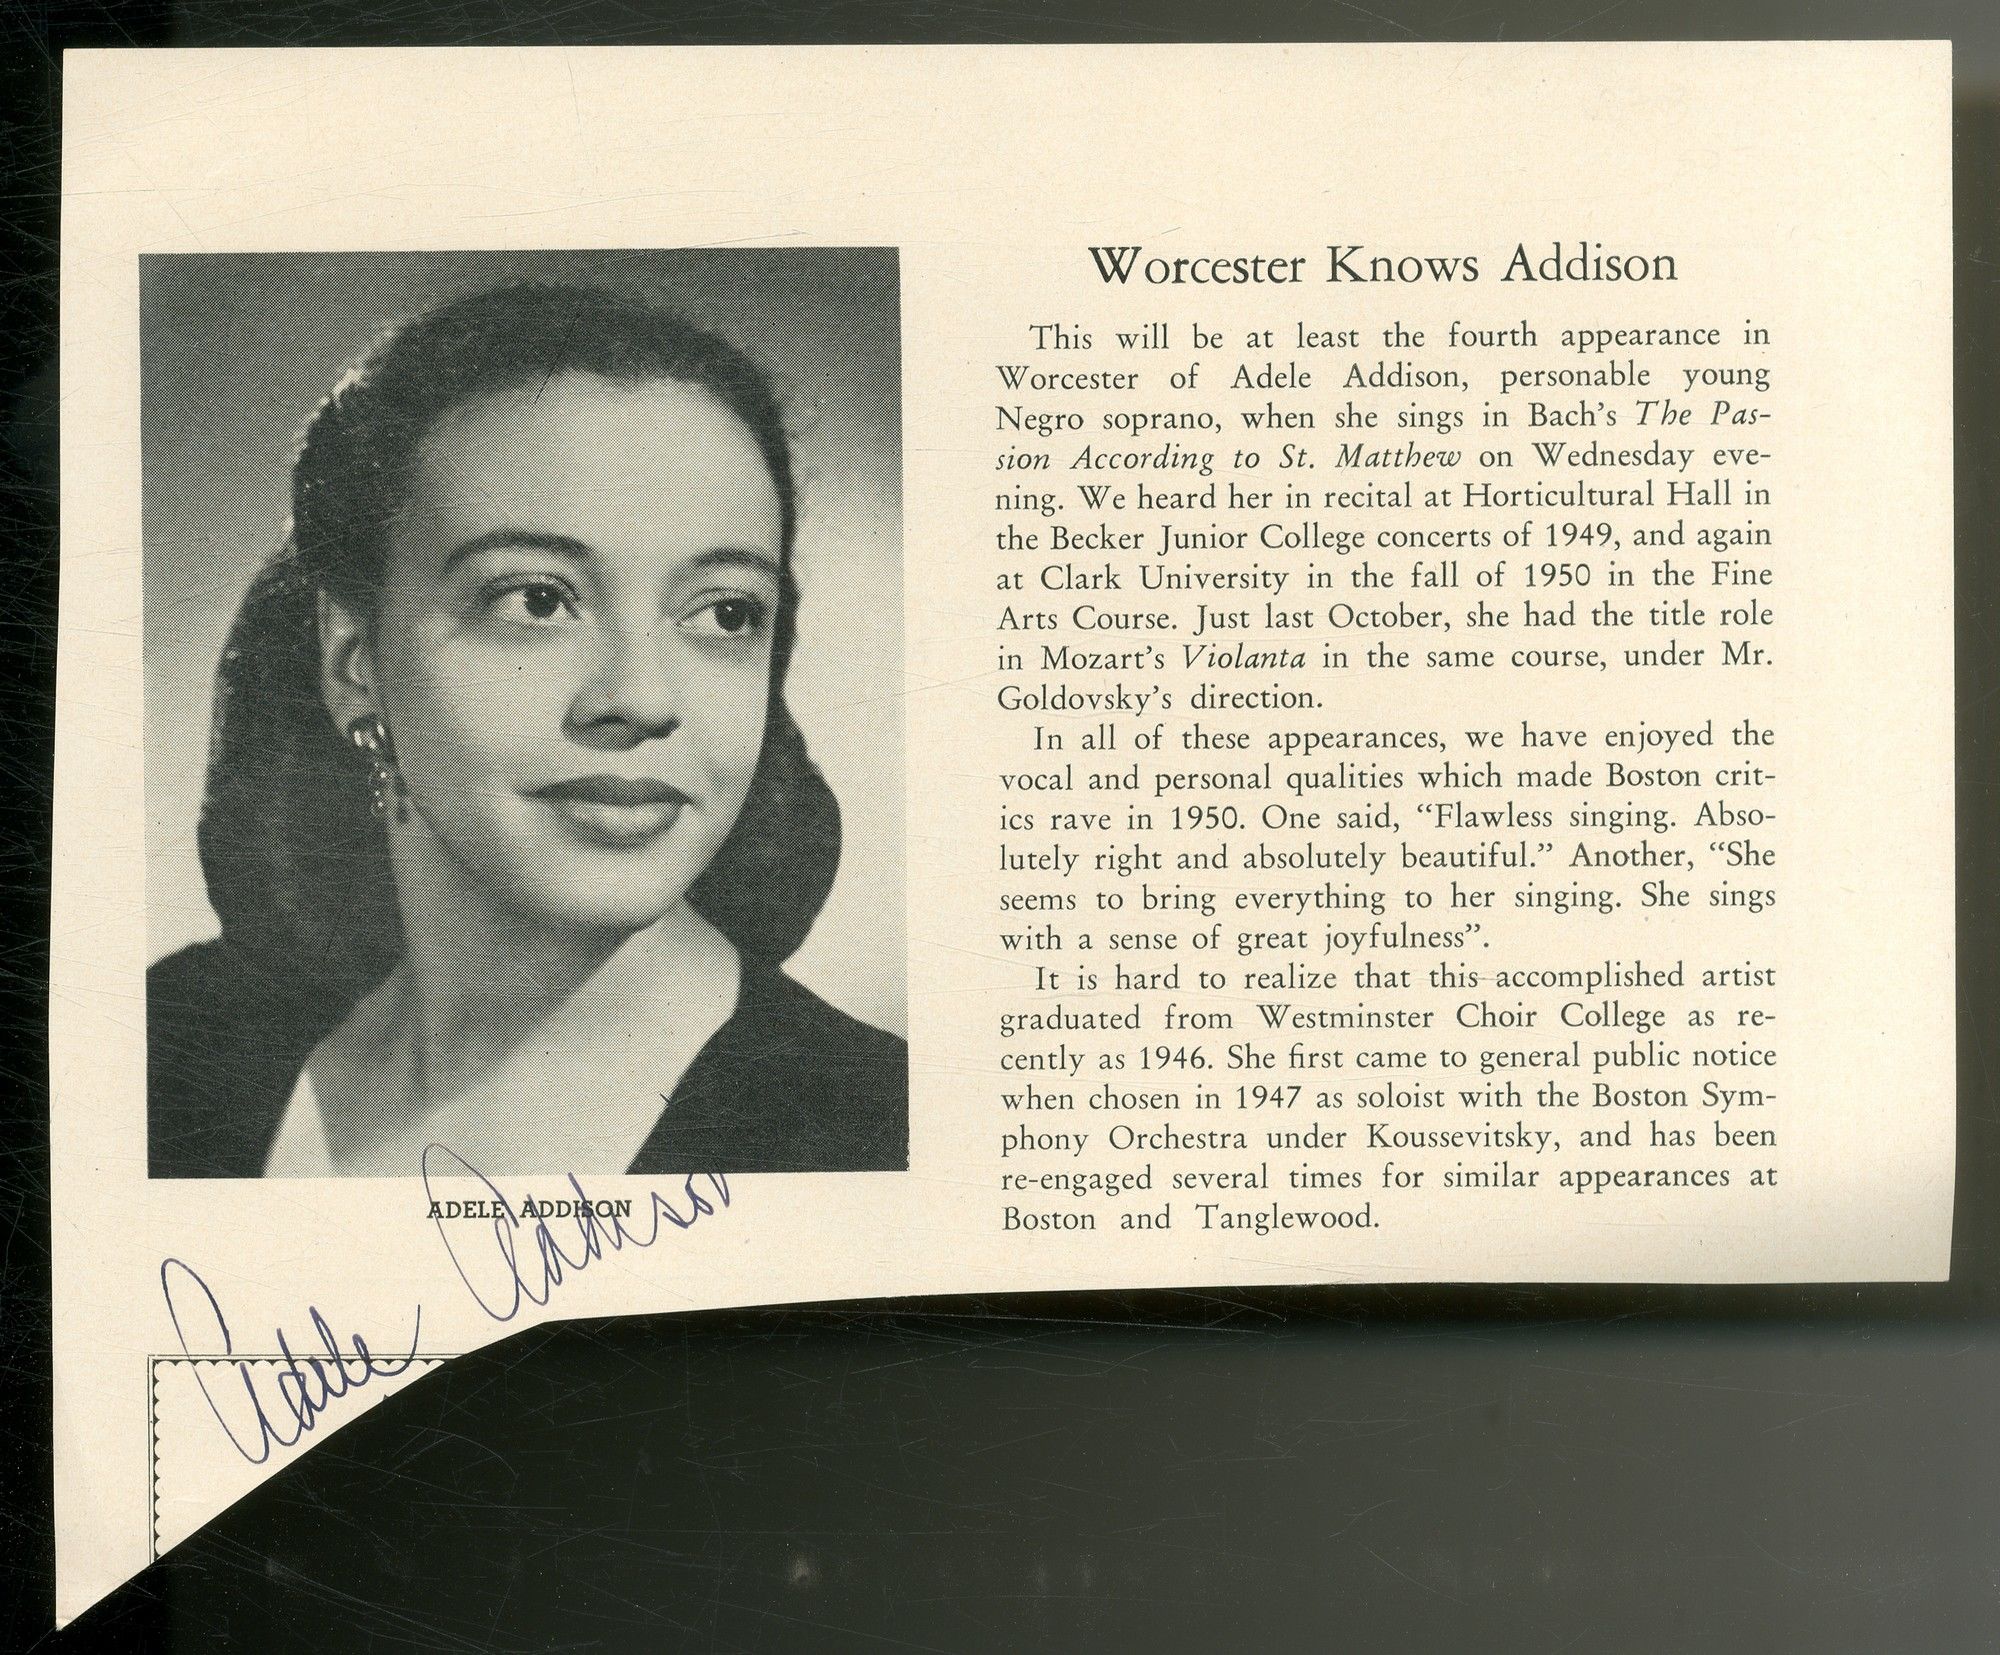 Worcester Knows Addison
This will be at least the fourth appearance in
Worcester of Adele Addison, personable young
Negro soprano, when she sings in Bach's The Pas-
sion According to St. Matthew on Wednesday eve-
ning. We heard her in recital at Horticultural Hall in
the Becker Junior College concerts of 1949, and again
at Clark University in the fall of 1950 in the Fine
Arts Course. Just last October, she had the title role
in Mozart's Violanta in the same course, under Mr.
Goldovsky's direction.
In all of these appearances, we have enjoyed the
vocal and personal qualities which made Boston crit-
ics rave in 1950. One said, “Flawless singing. Abso-
lutely right and absolutely beautiful.” Another, “She
seems to bring everything to her singing. She sings
with a sense of great joyfulness”.
It is hard to realize that this accomplished artist
graduated from Westminster Choir College as re-
cently as 1946. She first came to general public notice
when chosen in 1947 as soloist with the Boston Sym-
phony Orchestra under Koussevitsky, and has been
re-engaged several times for similar appearances at
Boston and Tanglewood.
ADELE ADDISON
Adele Addison